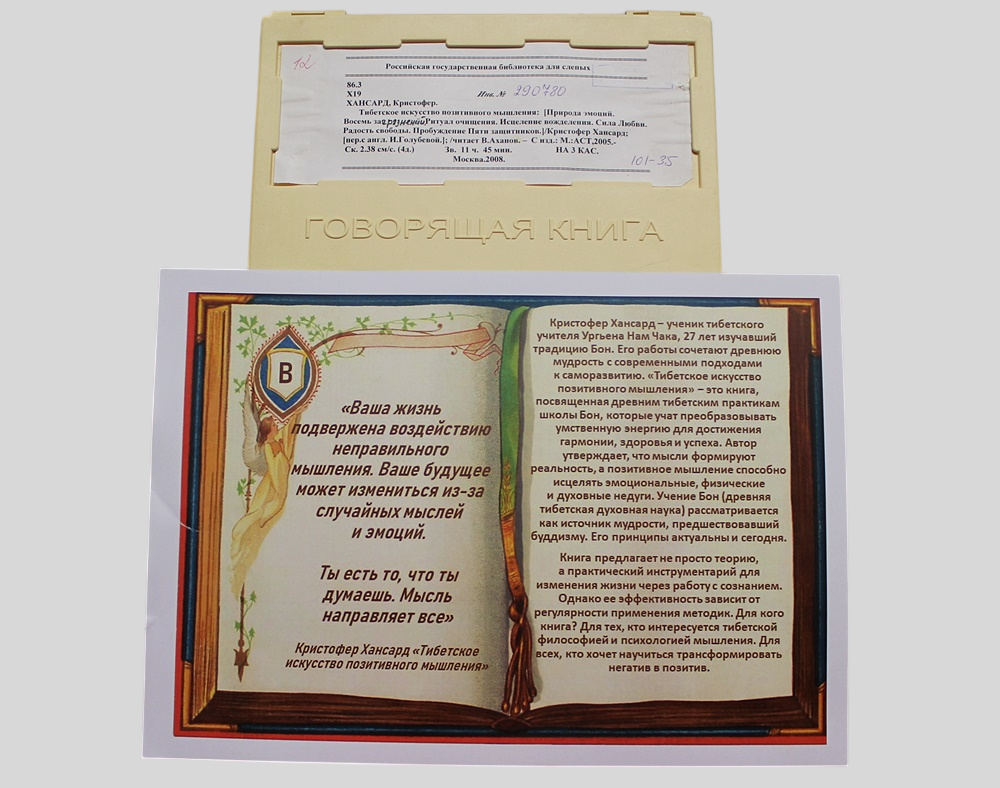 12
Российская государственная библиотека для слепых
86.3
Х19
Инв.№ 290780
ХАНСАРД, Кристофер.
Тибетское искусство позитивного мышления: [Природа эмоций.
Восемь заг Ритуал очищения. Исцеление вожделения. Сила Любви.
Радость свободы. Пробуждение Пяти защитников.]/Кристофер Хансард;
[пер.с англ. И.Голубевой.]; /читает В.Аханов. – С изд.: М.:АСТ,2005.-
Ск. 2.38 см/с. (4д.) Зв. 11 ч. 45 мин. НА 3 КАС.
Москва.2008.
101-35
ГОВОРЯЩАЯ КНИГА
В
«Ваша жизнь
подвержена воздействию
неправильного
мышления. Ваше будущее
может измениться из-за
случайных мыслей
и эмоций.
Ты есть то, что ты
думаешь. Мысль
направляет все»
Кристофер Хансард «Тибетское
искусство позитивного мышления»
Кристофер Хансард – ученик тибетского
учителя Ургьена Нам Чака, 27 лет изучавший
традицию Бон. Его работы сочетают древнюю
мудрость с современными подходами
к саморазвитию. «Тибетское искусство
позитивного мышления» – это книга,
посвященная древним тибетским практикам
школы Бон, которые учат преобразовывать
умственную энергию для достижения
гармонии, здоровья и успеха. Автор
утверждает, что мысли формируют
реальность, а позитивное мышление способно
исцелять эмоциональные, физические
и духовные недуги. Учение Бон (древняя
тибетская духовная наука) рассматривается
как источник мудрости, предшествовавший
буддизму. Его принципы актуальны и сегодня.
Книга предлагает не просто теорию,
а практический инструментарий для
изменения жизни через работу с сознанием.
Однако ее эффективность зависит от
регулярности применения методик. Для кого
книга? Для тех, кто интересуется тибетской
философией и психологией мышления. Для
всех, кто хочет научиться трансформировать
негатив в позитив.